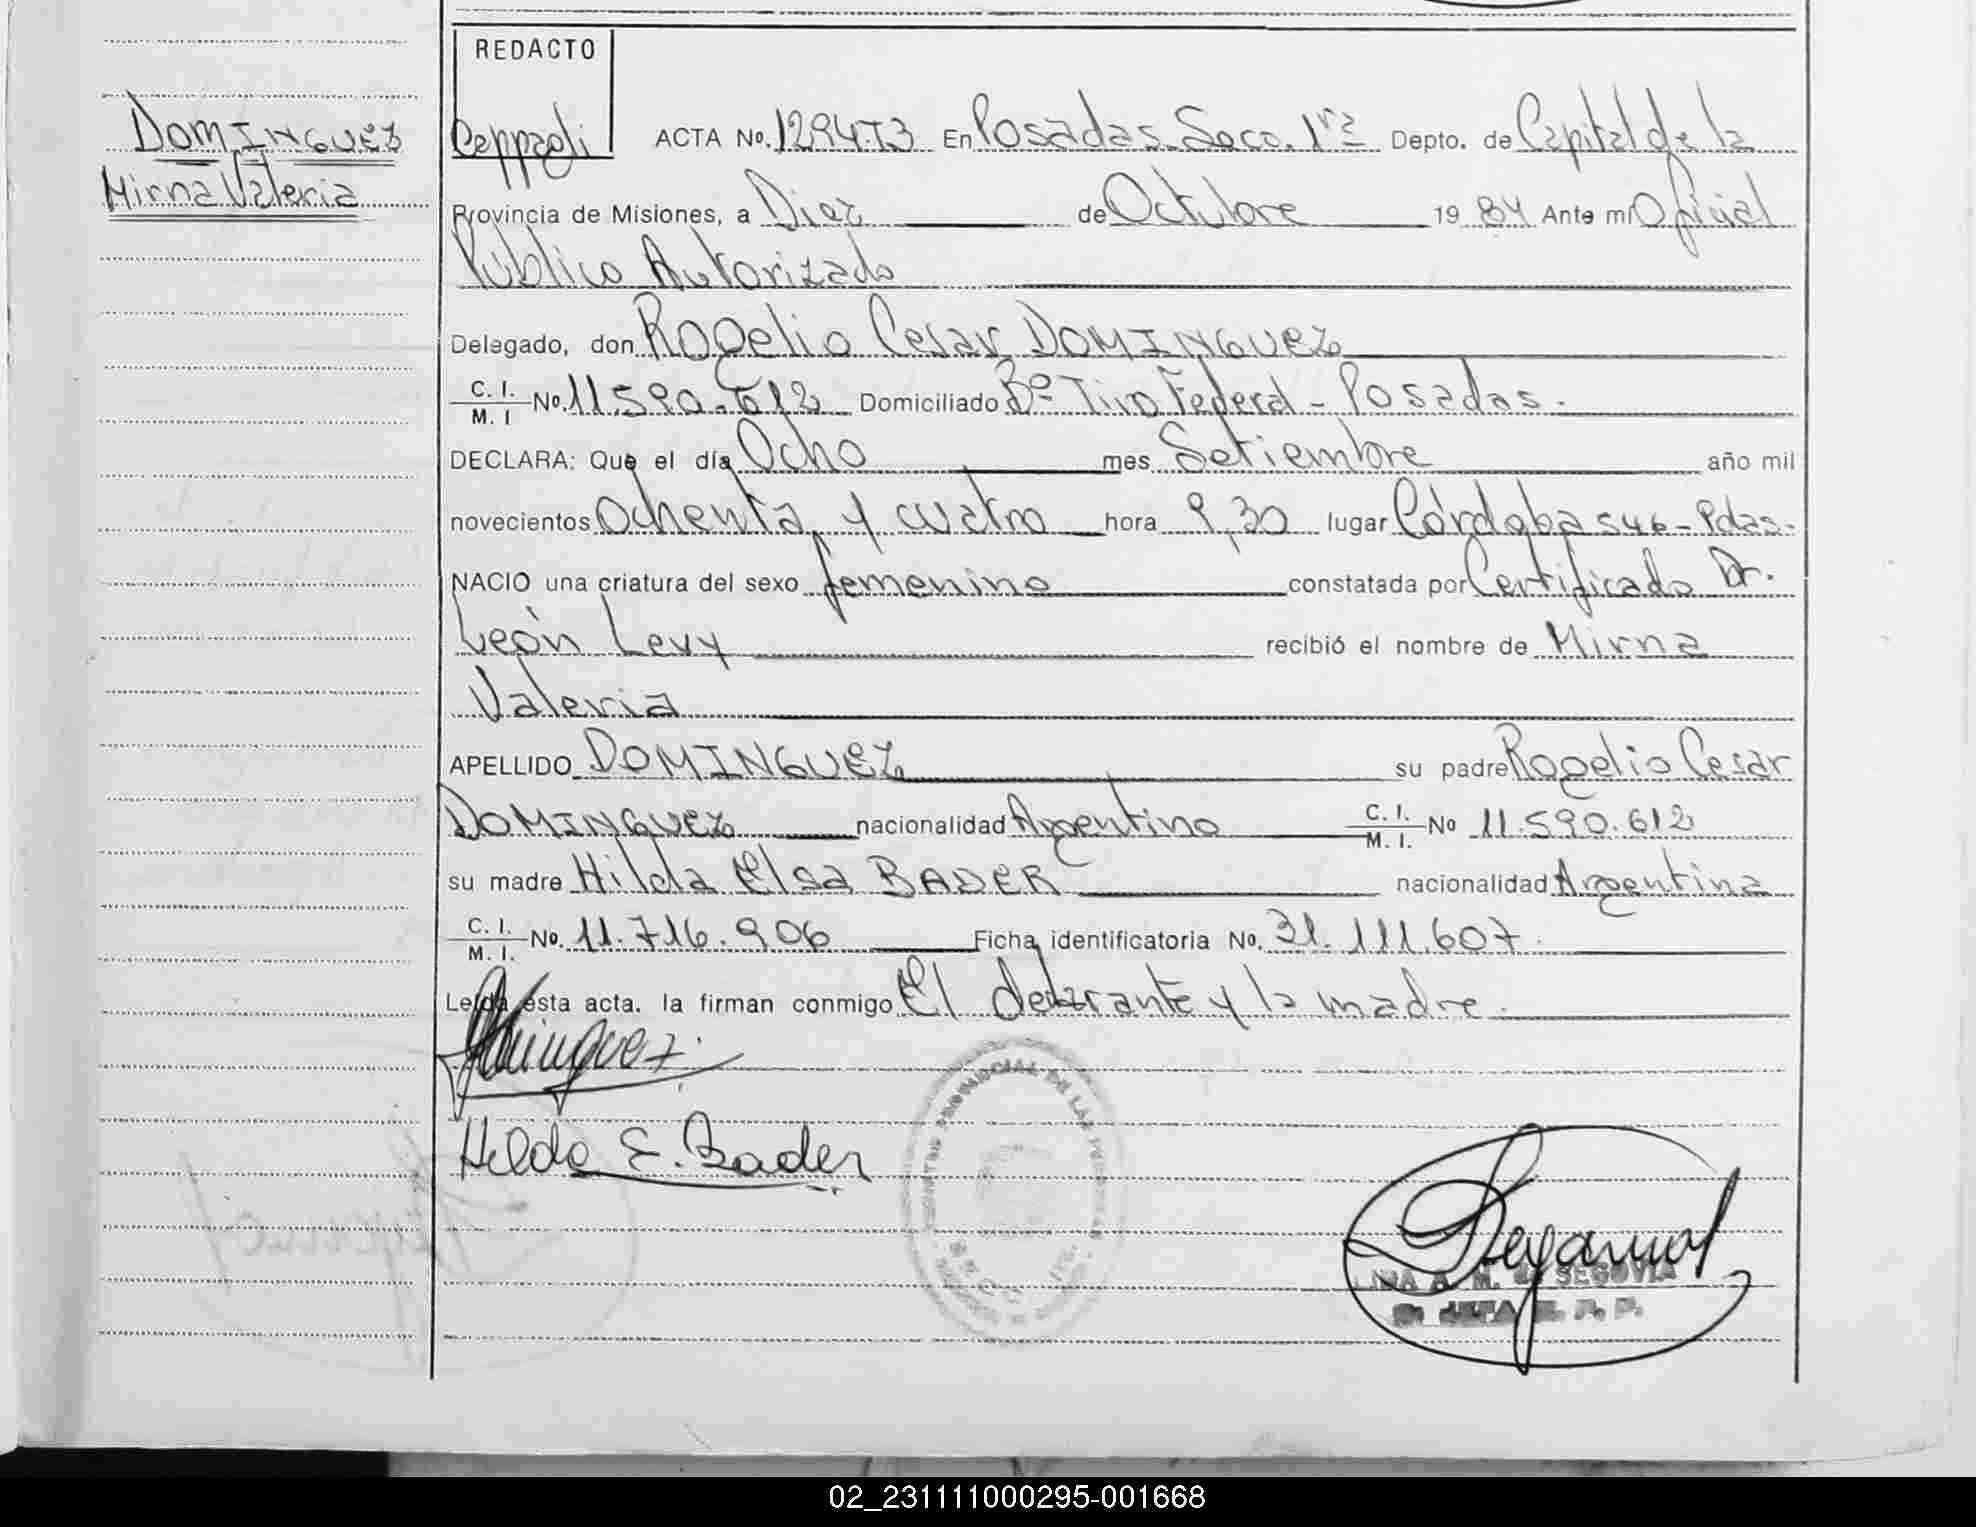 REDACTO
DOMINGUEZ
Mirna Valeria
Ceppaoli ACTA No. 1294T3 En Posadas Secc. 1ra Depto. de Capital de la
Provincia de Misiones, a Diez de Octubre 19 84 Ante mi Oficial
Público Autorizado
Delegado, don Rogelio Cesar DOMINGUEZ
C. I. M. I No. 11.590.612 Domiciliado Bº Tiro Federal - Posadas.
DECLARA: Que el día Ocho mes Setiembre año mil
novecientos ochenta y cuatro hora 9,30 lugar Córdoba 546 - Pdas.
NACIO una criatura del sexo femenino constatada por Certificado Dr.
León Levy recibió el nombre de Mirna
Valeria
APELLIDO DOMINGUEZ su padre Rogelio Cesar
DOMINGUEZ nacionalidad Argentino C. I. M. I. No 11.590.612
su madre Hilda Elsa BADER nacionalidad Argentina
C. I. M. I. No. 11.716.906 Ficha identificatoria No. 31.111.607.
Leída esta acta. la firman conmigo El declarante y la madre.
Hilda E. Bader
A. M. de SEGOVIA
02_231111000295-001668